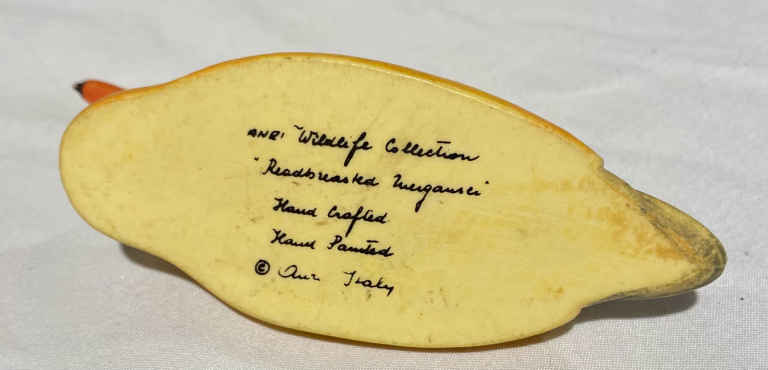 ANRI Wildlife Collection
"Readbreasted Merganser"
Hand Crafted
Hand Painted
© Anri Italy